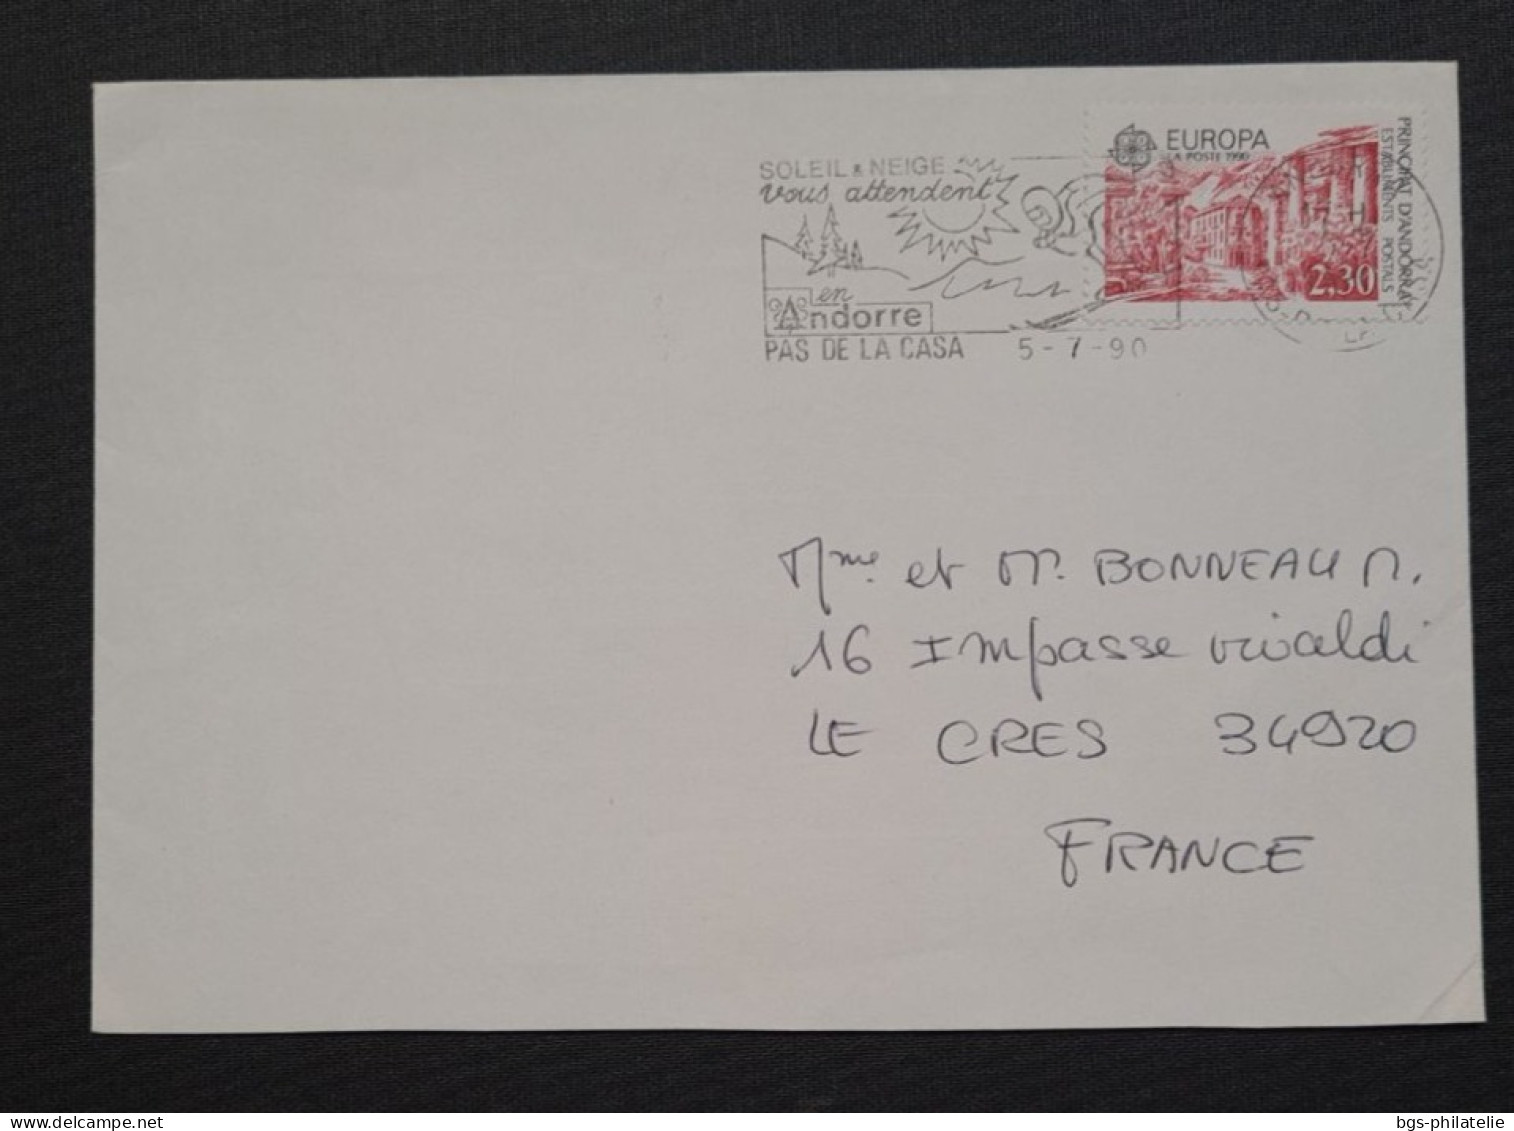 SOLEIL & NEIGE
vous attendent
en
Andorre
PAS DE LA CASA 5-7-90
EUROPA
LA POSTE 1990
PRINCIPAT D'ANDORRA
ESTABLIMENTS POSTALS
2,30
Mme. et Mr. BONNEAU M.
16 Impasse vivaldi
LE CRES 34920
FRANCE
bgs-philatelie